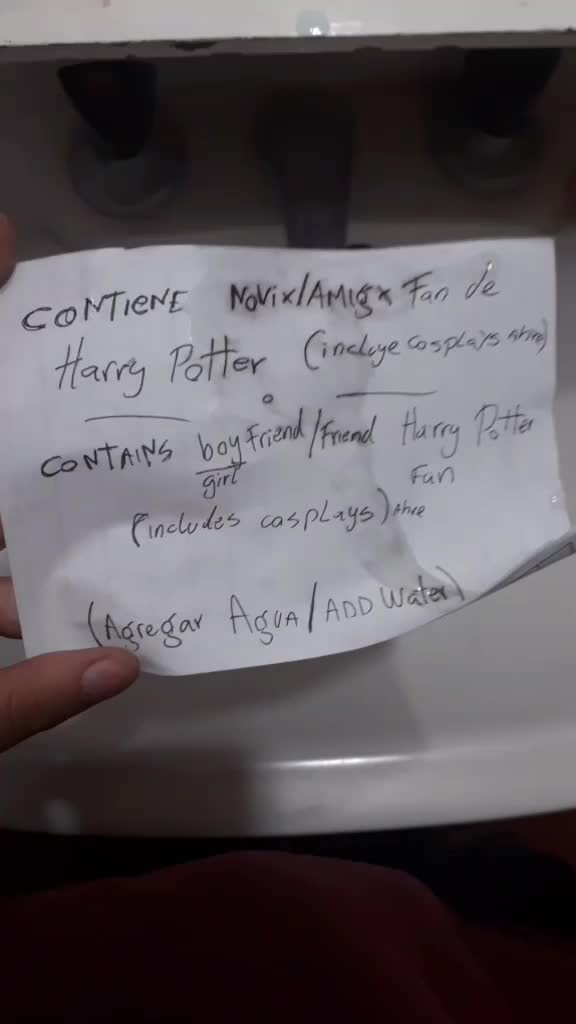 CONTIENE NOVIX/AMIGX Fan de
Harry Potter (incluye cosplays
CONTAINS boyfriend/Friend Harry Potter
girl Fan
(includes cosplays)
(Agregar AGUA/ADD Water)